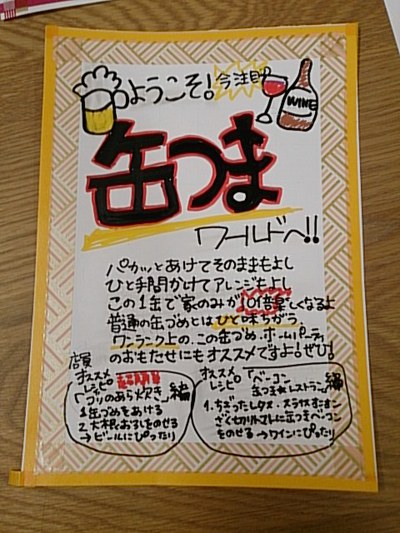 ようこそ!
今注目!
WINE
缶つま
ワールドへ!!
パカッとあけてそのままもよし
ひと手間かけてアレンジもよし
この1缶で家のみが101倍楽しくなるよ
普通の缶づめとはひと味ちがう
ワンランク上の、この缶づめ、ホームパーティ
のおもたせにもオススメですよ!ぜひ!
店員
オススメ
レシピ
「ブリのあら炊き」編
1.缶づめをあける
2.大根おろしをのせる
→ビールにぴったり
オススメ
レシピ
「ベーコン
缶つま★レストラン」編
1.ちぎったレタス・スライスオニオン
ざく切りトマトに缶つまベーコン
をのせる→ワインにぴったり